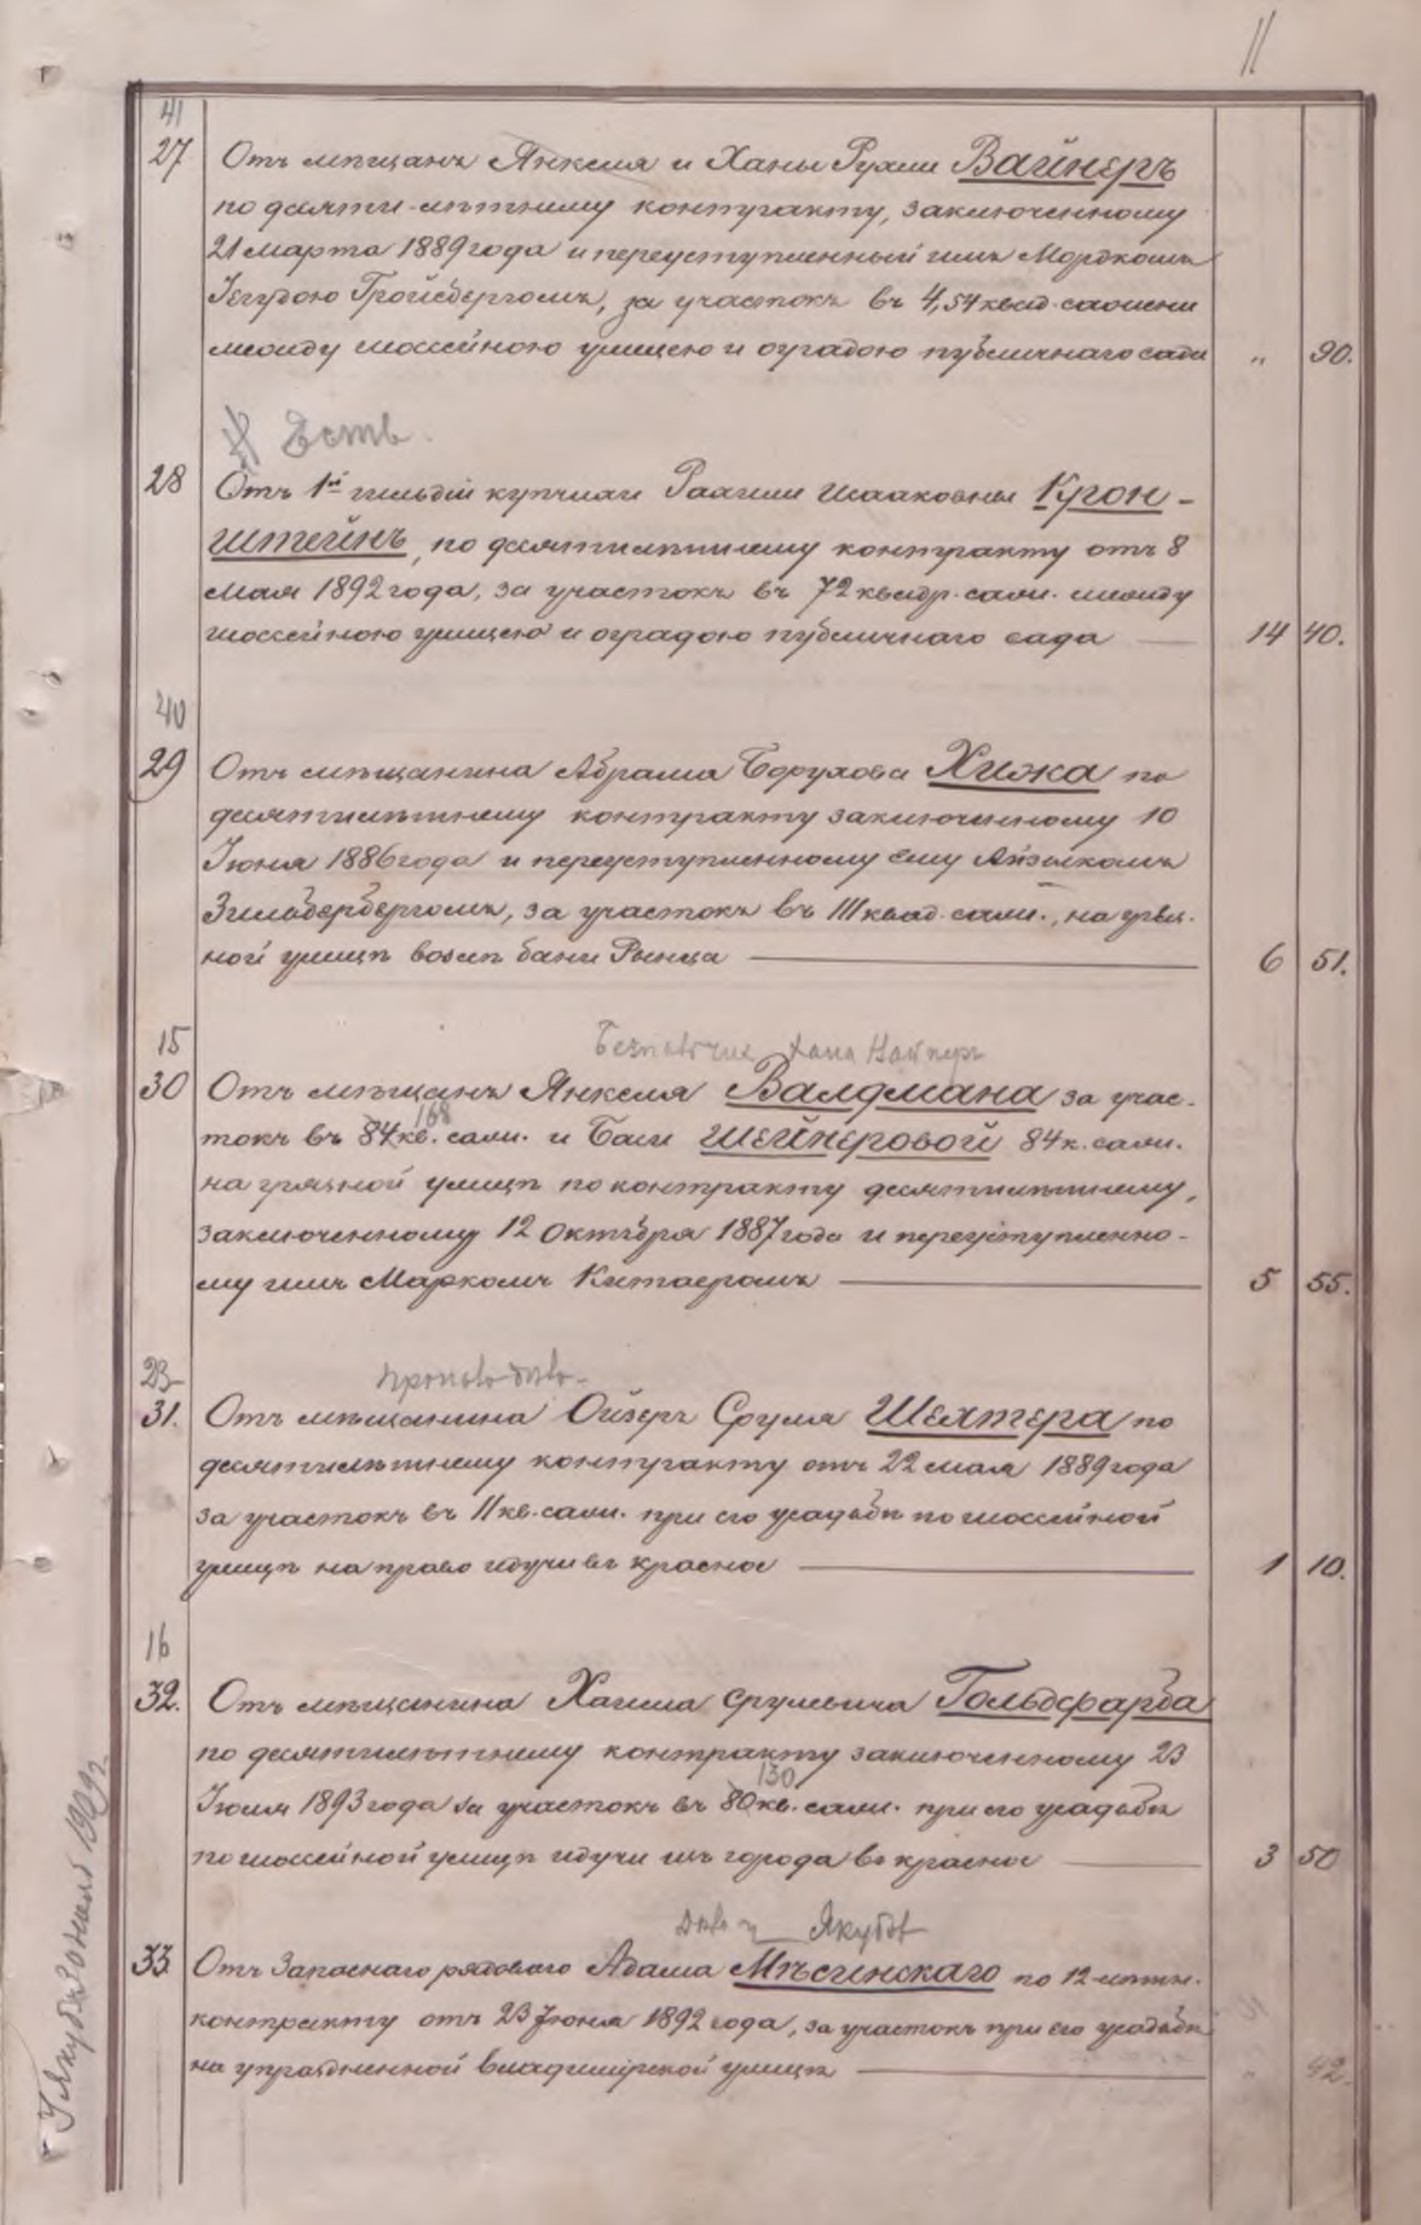 11
41
27 Отъ мѣщанъ Янкеля и Ханы Рухли Вайнеръ
по десяти-лѣтнему контракту, заключенному
21 марта 1889 года и переуступленный имъ Мордкомъ
Іегудою Гройсбергомъ, за участокъ въ 4,54 квад. сажени
между шоссейною улицею и оградою публичнаго сада „ 90.
Есть.
28 Отъ 1й гильдіи купчихи Рахили Исааковны Крон-
штейнъ, по десятилѣтнему контракту отъ 8
мая 1892 года, за участокъ въ 72 квадр. саж. между
шоссейною улицею и оградою публичнаго сада 14 40.
40
29 Отъ мѣщанина Абрама Борухова Хижа по
десятилѣтнему контракту заключенному 10
Іюня 1886 года и переуступленному ему Айзикомъ
Зильбербергомъ, за участокъ въ 111 квад. саж., на гряз-
ной улицѣ возлѣ бани Рынца 6 51.
15
Хана
30 Отъ мѣщанъ Янкеля Валдмана за учас-
168
токъ въ 84 кв. саж. и Баси Шейнеровой 84 к. саж.
на грязной улицѣ по контракту десятилѣтнему,
заключенному 12 Октября 1887 года и переуступленно-
му имъ Маркомъ Китаеромъ 5 55.
23
31. Отъ мѣщанина Ойзеръ Сруля Шехтера по
десятилѣтнему контракту отъ 22 мая 1889 года
за участокъ въ 11 кв. саж. при его усадьбѣ по шоссейной
улицѣ на право идучи въ красное 1 10.
16
32. Отъ мѣщанина Хаима Срулевича Гольдфарба
по десятилѣтнему контракту заключенному 23
130
Іюля 1893 года за участокъ въ 80 кв. саж. при его усадьбѣ
по шоссейной улицѣ идучи изъ города въ красное 3 50
Якубов
33. Отъ Запаснаго рядоваго Адама Мѣсинскаго по 12-лѣтн.
контракту отъ 23 Іюня 1892 года, за участокъ при его усадьбѣ
на упраздненной владимірской улицѣ „ 42.